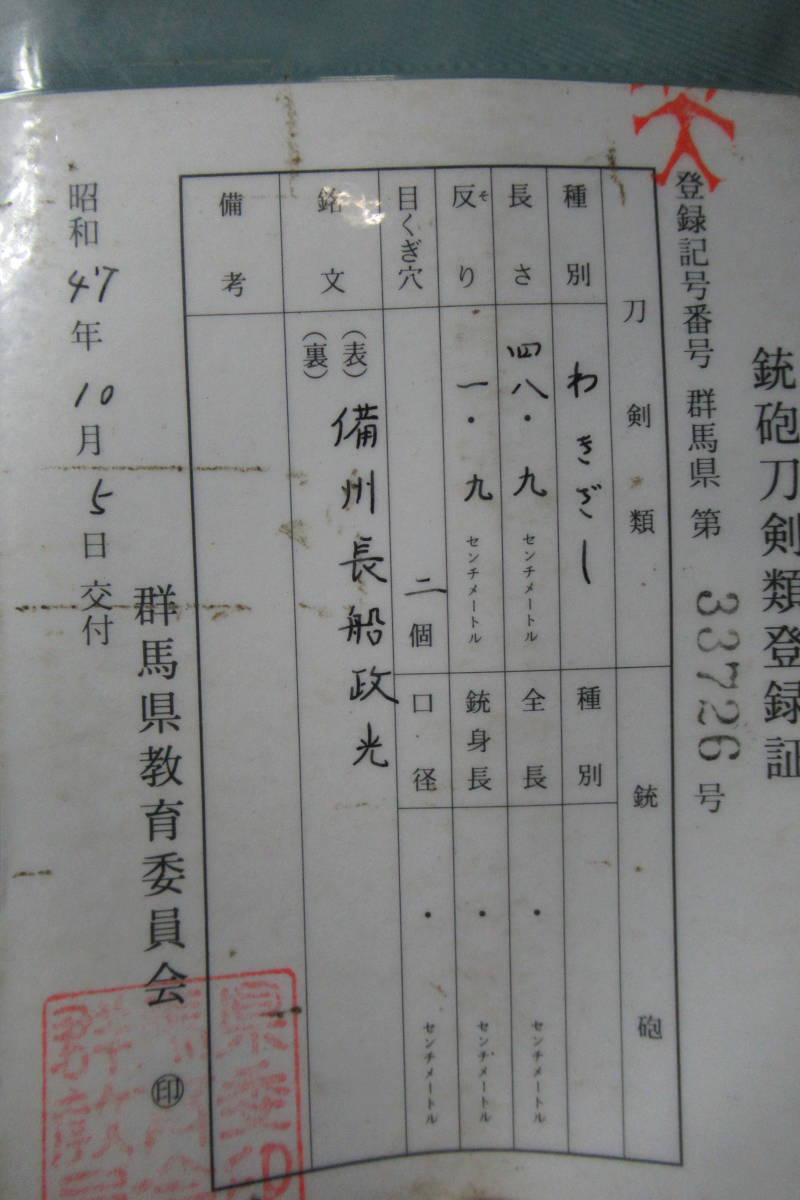 銃砲刀剣類登録証
登録記号番号 群馬県 第 33726 号
刀剣類
種別 わきざし
長さ 四八・九 センチメートル
反り そ 一・九 センチメートル
目くぎ穴 二個
銘文 (表) 備州長船政光
(裏)
備考
銃砲
種別
全長 ・ センチメートル
銃身長 ・ センチメートル
口径 ・ センチメートル
昭和47年10月5日交付
群馬県教育委員会 印